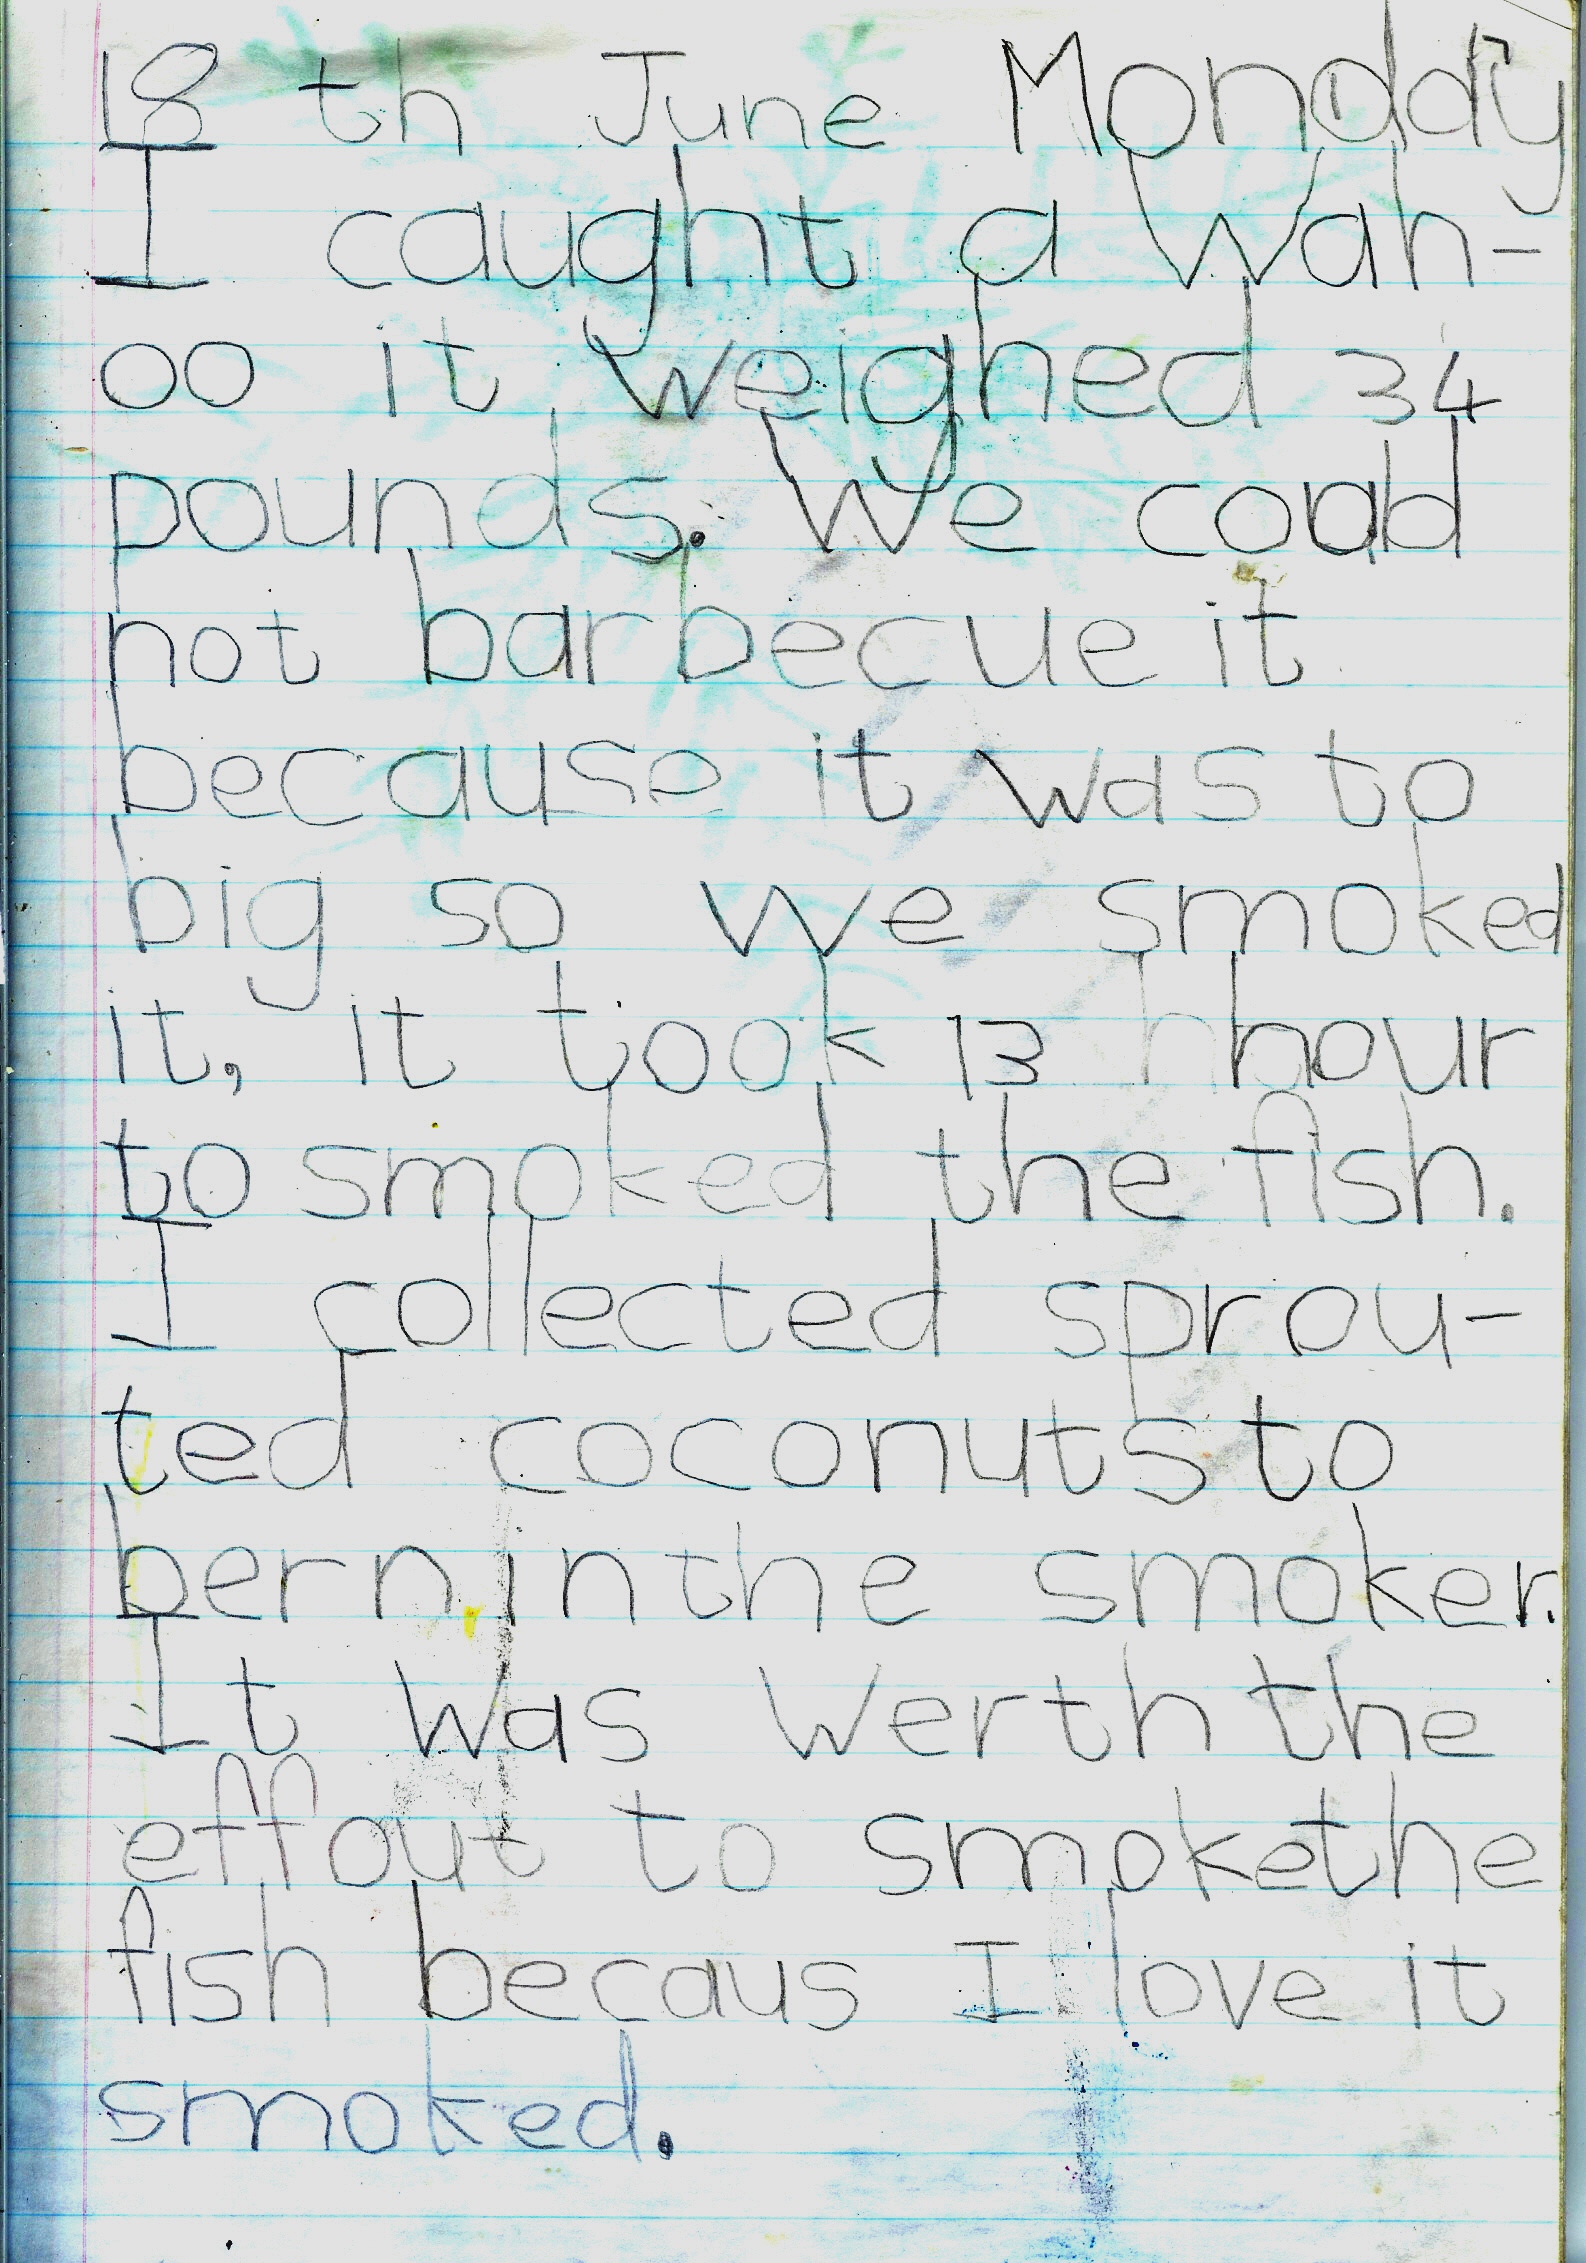 18 th June Monday
I caught a Wah-
oo it weighed 34
pounds. We could
not barbecue it
because it was to
big so we smoked
it, it took 13 hour
to smoked the fish.
I collected sprou-
ted coconuts to
bern in the smoker.
It was werth the
effout to smoke the
fish becaus I love it
smoked.